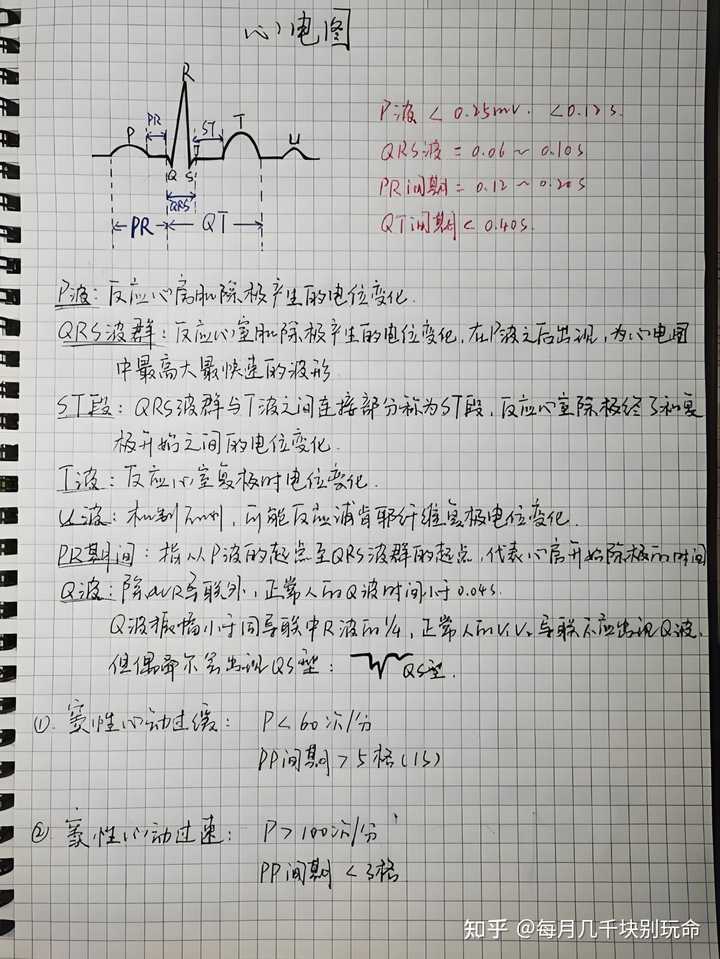 心电图
R
PR
ST
T
P
J
U
Q
S
QRS
PR
QT
P波 < 0.25mv. <0.12s.
QRS波 = 0.06 ~ 0.10s
PR间期 = 0.12 ~ 0.20s
QT间期 < 0.40s.
P波：反应心房肌除极产生的电位变化.
QRS波群：反应心室肌除极产生的电位变化，在P波之后出现，为心电图
中最高大最快速的波形
ST段：QRS波群与T波之间连接部分称为ST段，反应心室除极终了和复
极开始之间的电位变化.
T波：反应心室复极时电位变化.
U波：机制不明，可能反应浦肯耶纤维复极电位变化.
PR期间：指从P波的起点至QRS波群的起点，代表心房开始除极的时间
Q波：除aVR导联外，正常人的Q波时间小于0.04s.
Q波振幅小于同导联中R波的1/4，正常人的V₁V₂导联不应出现Q波，
但偶尔会出现QS型：
QS型.
①. 窦性心动过缓： P < 60次/分
PP间期 > 5格(1s)
② 窦性心动过速： P > 100次/分
PP间期 < 3格
知乎 @每月几千块别玩命